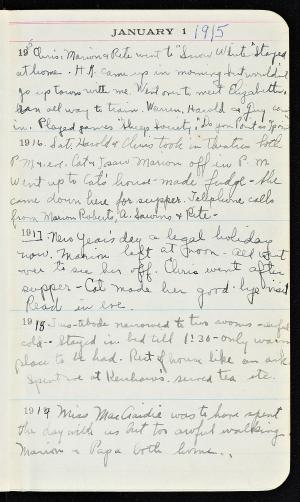 JANUARY 1 1915
1915 Chris. Marion & Pete went to "Snow White" Stayed
at home. H.H. came up in morning but wouldn't
go up town with me. Went over to meet Elizabeth,
ran all way to train. Warren, Harold & Guy came
in. Played games "Sleep Society."
1916. Sat. Harold & Chris took in Theatres both
P M & eve. Cat & I saw Marion off in P. M.
Went up to Cat's house - made fudge - She
came down here for supper. Telephone calls
from Marion Roberts, A. & Pete -
1917 New Year's day a legal holiday
now. Marion left at noon - all went
over to see her off. Chris went after
supper - Cat made her good-bye visit
Read in eve.
1918 narrowed to two rooms - awful
cold - Stayed in bed till 1:30 - only warm
place to be had. Rest of house like an ark
Spent eve at served tea etc.
1919 Miss was to have spent
the day with us but too awful walking.
Marion & Papa both home..